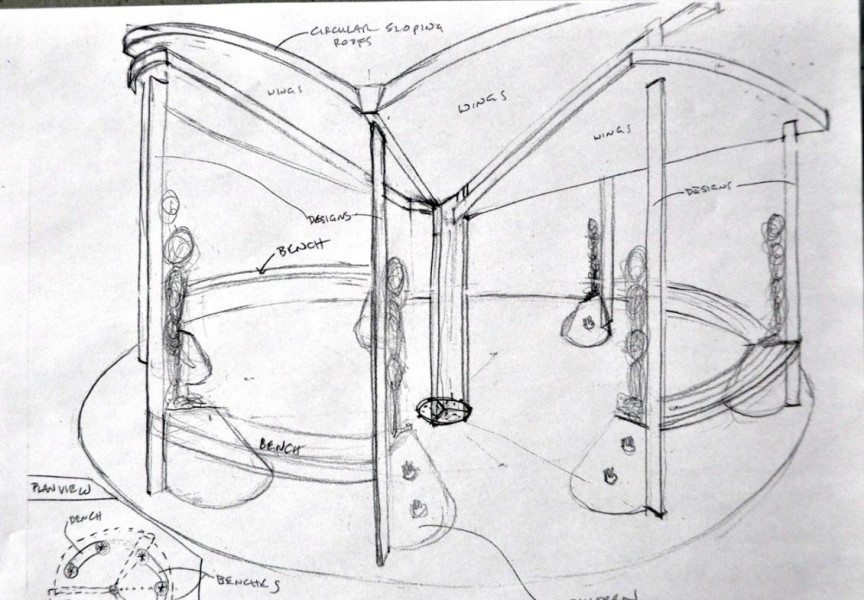 CIRCULAR SLOPING
WINGS
WINGS
WINGS
DESIGNS
DESIGNS
BENCH
BENCH
PLAN VIEW
BENCH
BENCHES